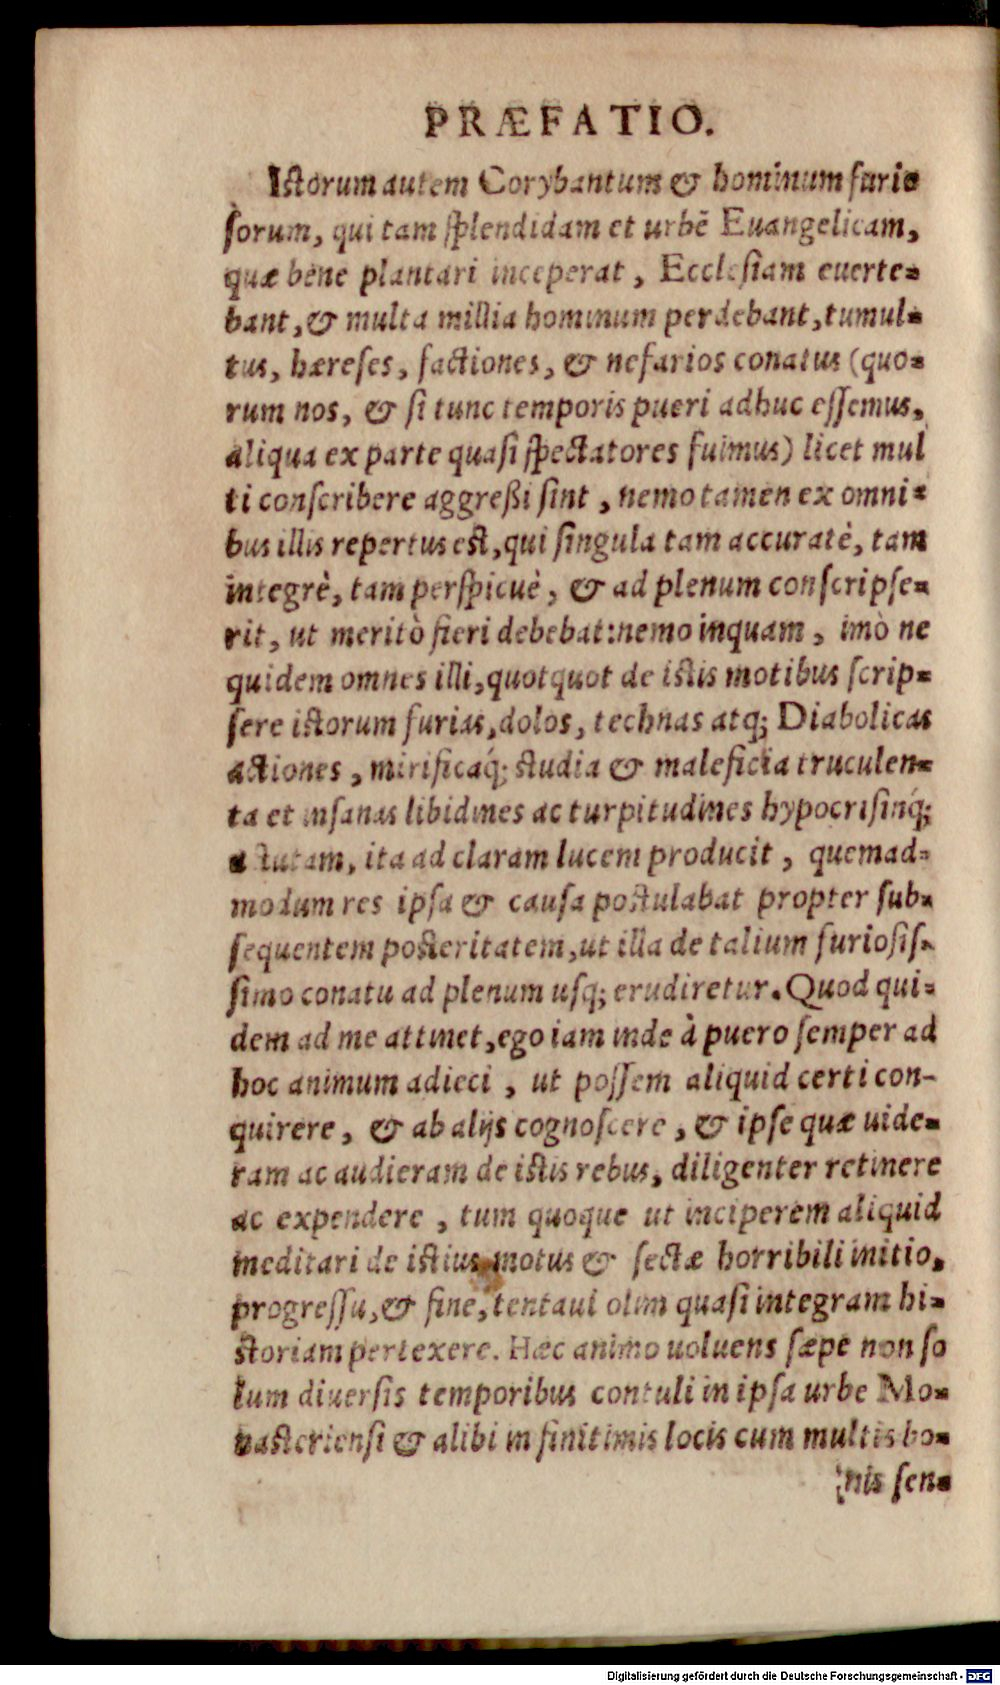 PRÆFATIO.
Istorum autem Corybantum & hominum furio
sorum, qui tam splendidam et urbē Euangelicam,
quæ bene plantari inceperat, Ecclesiam euerte-
bant, & multa millia hominum perdebant, tumul-
tus, hæreses, factiones, & nefarios conatus (quo-
rum nos, & si tunc temporis pueri adhuc essemus,
aliqua ex parte quasi spectatores fuimus) licet mul
ti conscribere aggreßi sint, nemo tamen ex omni-
bus illis repertus est, qui singula tam accuratè, tam
integrè, tam perspicuè, & ad plenum conscripse-
rit, ut meritò fieri debebat: nemo inquam, imò ne
quidem omnes illi, quotquot de istis motibus scrip-
sere istorum furias, dolos, technas atq; Diabolicas
actiones, mirificaq́; studia & maleficia truculen-
ta et insanas libidines ac turpitudines hypocrisinq́;
astutam, ita ad claram lucem producit, quemad-
modum res ipsa & causa postulabat propter sub-
sequentem posteritatem, ut illa de talium furiosis-
simo conatu ad plenum usq; erudiretur. Quod qui-
dem ad me attinet, ego iam inde à puero semper ad
hoc animum adieci, ut possem aliquid certi con-
quirere, & ab alijs cognoscere, & ipse quæ uide-
ram ac audieram de istis rebus, diligenter retinere
ac expendere, tum quoque ut inciperem aliquid
meditari de istius motus & sectæ horribili initio,
progressu, & fine, tentaui olim quasi integram hi-
storiam pertexere. Hæc animo uoluens sæpe non so
lum diuersis temporibus contuli in ipsa urbe Mo-
nasteriensi & alibi in finitimis locis cum multis bo-
nis sen-
Digitalisierung gefördert durch die Deutsche Forschungsgemeinschaft - DFG